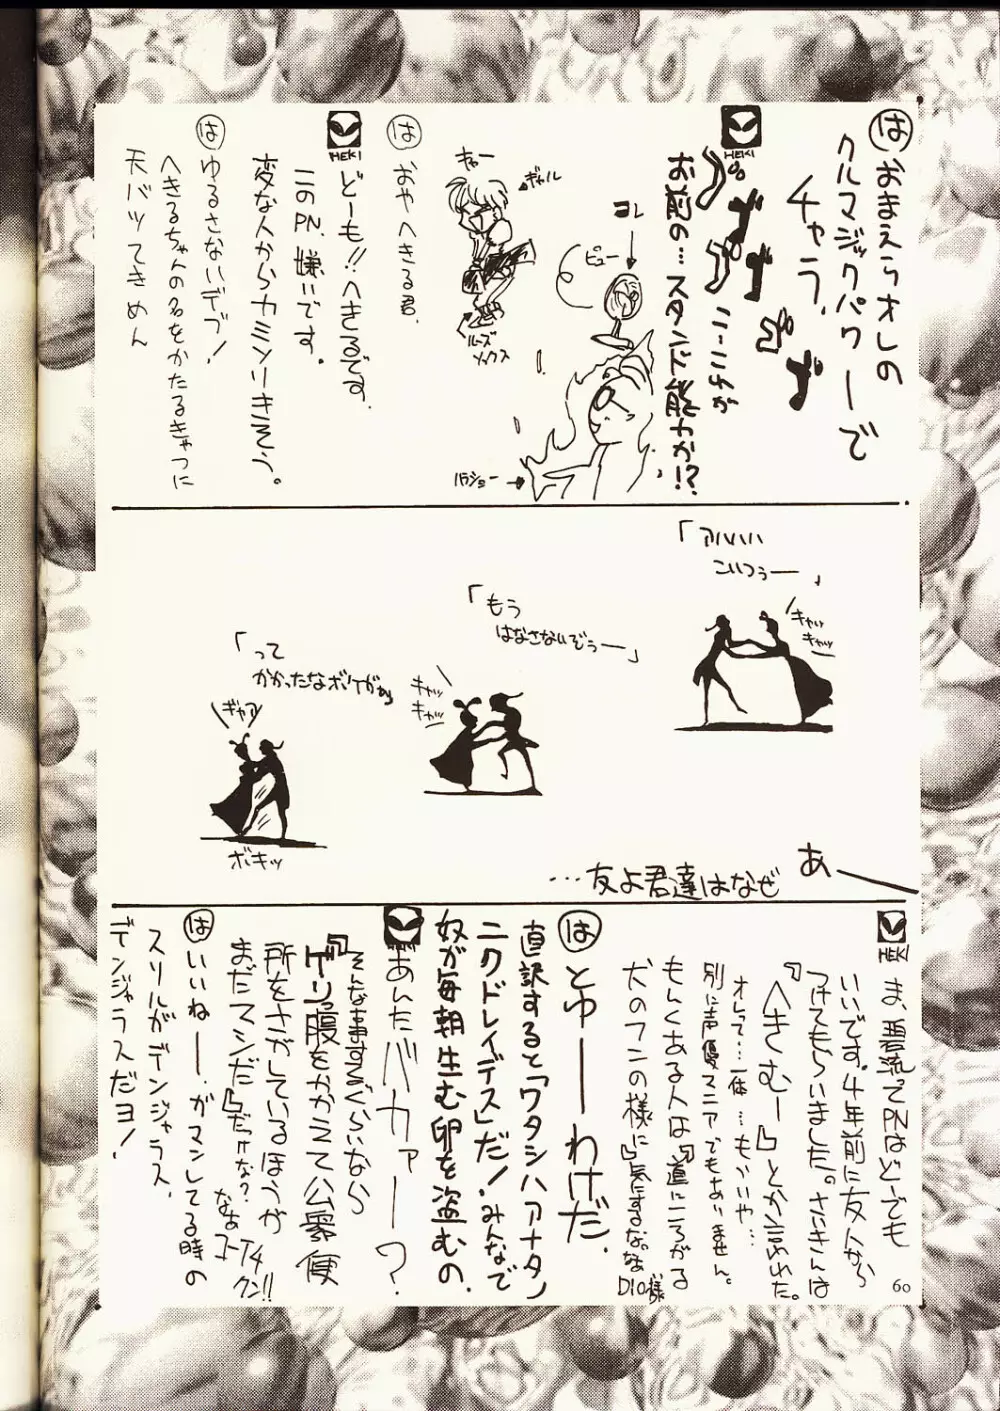 は
おまえらオレの
クルマジックパワーで
チャラ、
HEKI
パ゜ ズ ズ ズ
こ…これが
お前の…スタンド能力か!?
コレ
ビュー
パラショー
キュー
ギャル
ルーズ
ソックス
は
おやへきる君、
HEKI
どーも!!へきるです。
このPN、嫌いです。
変な人からカミソリきそう。
は
ゆるさないデブ!
へきるちゃんの名をかたるきゃつに
天バツてきめん
「アハハハ
こいつぅー」
キャッ
キャッ
「もう
はなさないぞぅー」
キャッ
キャッ
「って
かかったなボケがぁ
ギャア
ボキッ
あー
…友よ君達はなぜ
HEKI
ま、君流ってPNはどーでも
いいです。4年前に友人から
つけてもらいました。さいきんは
『へきむー』とか言われた。
オレって…一体…もぉいいや…
別に声優マニアでもありません。
もんくある人は『道にころがる
犬のフンの様に』気にするな。なぁ
DIO様
は
とゆーーわけだ、
直訳すると「ワタシハアナタノ
ニクドレイデス」だ!みんなで
奴が毎朝生む卵を盗むの、
HEKI
あんたバカァー?
そんな事するぐらいなら
『ゲリっ腹をかかえて公衆便
所をさがしているほうが
まだマシだ』だっけな?
なぁ
コーイチ
クン!!
は
いいねー、ガマンしてる時の
スリルがデンジャラス、
デンジャラスだヨ!
60